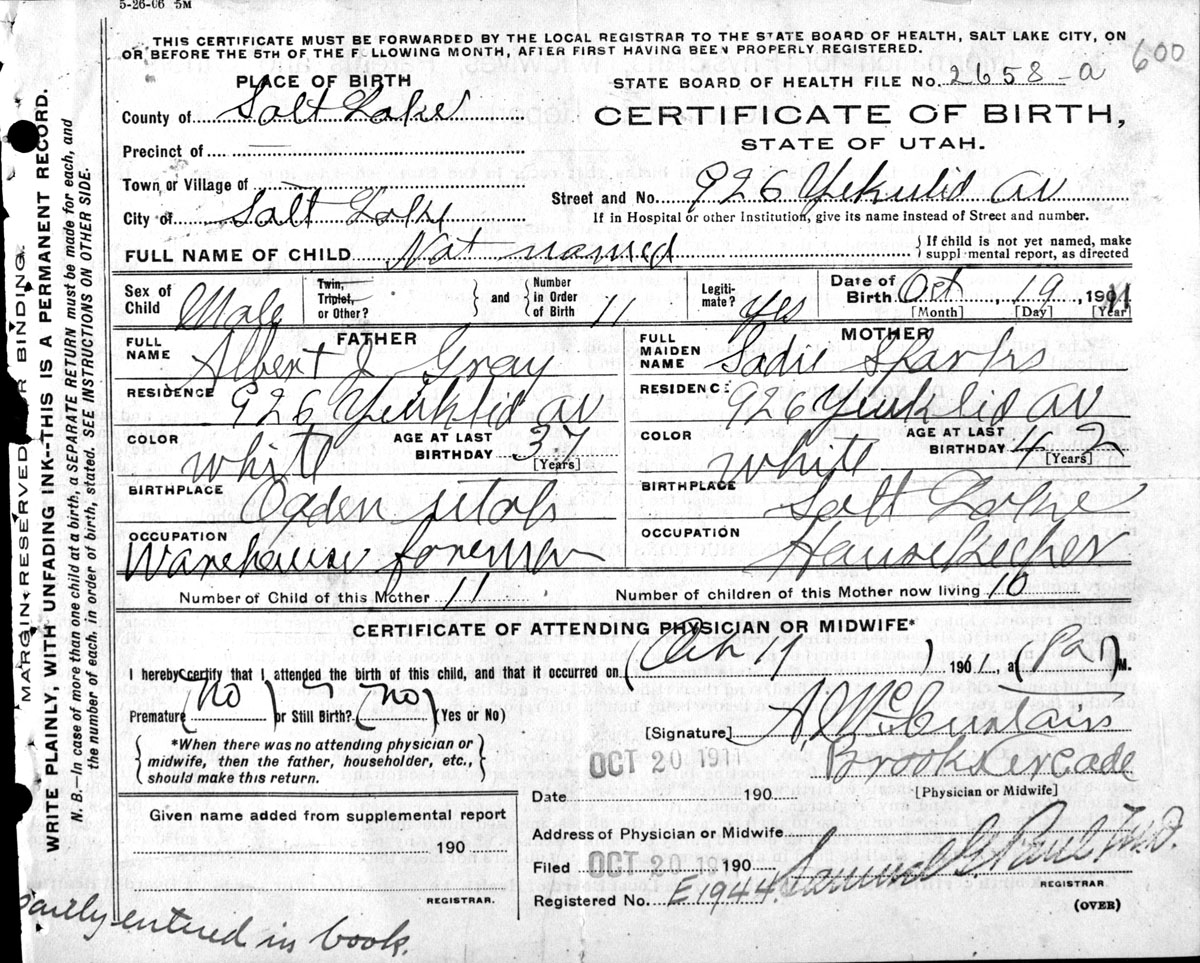 5-26-06 5M
THIS CERTIFICATE MUST BE FORWARDED BY THE LOCAL REGISTRAR TO THE STATE BOARD OF HEALTH, SALT LAKE CITY, ON
OR BEFORE THE 5TH OF THE F LLOWING MONTH, AFTER FIRST HAVING BEEN PROPERLY REGISTERED.
600
PLACE OF BIRTH
STATE BOARD OF HEALTH FILE No. 2658-a
County of Salt Lake
CERTIFICATE OF BIRTH,
Precinct of
STATE OF UTAH.
Town or Village of
Street and No. 926 Yekulid av
City of Salt Lake
If in Hospital or other Institution, give its name instead of Street and number.
FULL NAME OF CHILD Not named
If child is not yet named, make
suppl mental report, as directed
Sex of Child Male
Twin, Triplet, or Other?
and
Number in Order of Birth 11
Legiti-mate? Yes
Date of Birth Oct, 19, 1911
[Month] [Day] [Year]
FATHER
MOTHER
FULL NAME Albert J. Gray
FULL MAIDEN NAME Sadie Sparks
RESIDENCE 926 Yeuklid av
RESIDENCE 926 Yeuklid av
COLOR White
AGE AT LAST BIRTHDAY 37
[Years]
COLOR White
AGE AT LAST BIRTHDAY 42
[Years]
BIRTHPLACE Ogden utah
BIRTHPLACE Salt Lake
OCCUPATION Warehouse foreman
OCCUPATION Housekeeper
Number of Child of this Mother 11
Number of children of this Mother now living 10
CERTIFICATE OF ATTENDING PHYSICIAN OR MIDWIFE*
I hereby certify that I attended the birth of this child, and that it occurred on 1901, at M.
Premature (No) or Still Birth? (No) (Yes or No)
[Signature]
*When there was no attending physician or
midwife, then the father, householder, etc.,
should make this return.
OCT 20 1911
Brooks Arcade
Date 190
[Physician or Midwife]
Given name added from supplemental report
190
REGISTRAR.
Address of Physician or Midwife
Filed OCT 20 1911 190
Samuel G. Paul M.D.
Registered No. E1944.
REGISTRAR.
(OVER)
entered in book.
MARGIN RESERVED FOR BINDING.
WRITE PLAINLY, WITH UNFADING INK--THIS IS A PERMANENT RECORD.
N. B.—In case of more than one child at a birth, a SEPARATE RETURN must be made for each, and
the number of each, in order of birth, stated. SEE INSTRUCTIONS ON OTHER SIDE.